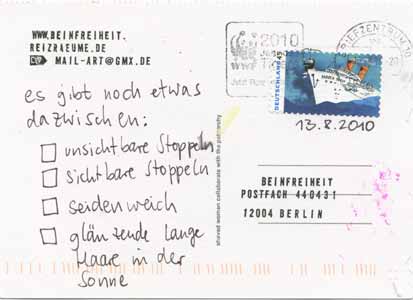 WWW.BEINFREIHEIT.
REIZRAEUME.DE
MAIL-ART@GMX.DE
es gibt noch etwas
dazwischen:
unsichtbare Stoppeln
sichtbare Stoppeln
seidenweich
glänzende lange
Haare in der
Sonne
shaved women collaborate with the patriarchy
WWF
2010
DEUTSCHLAND
BRIEFZENTRUM 10
13.8.2010
BEINFREIHEIT
POSTFACH 440431
12004 BERLIN